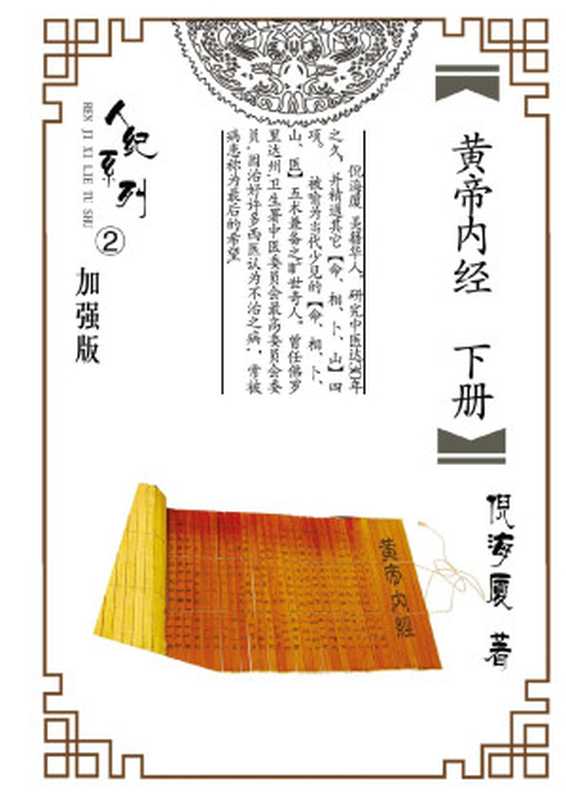 黄帝内经 下册
倪海厦 著
倪海厦,美籍华人,研究中医达30年
之久,并精通其它【命、相、卜、山】四
项。
被喻为当代少见的【命、相、卜、
山、医】五术兼备之旷世奇人。曾任佛罗
里达州,卫生署中医委员会最高委员会委
员,因治好许多西医认为不治之病,常被
病患称为最后的希望
人纪系列②
REN JI XI LIE TU SHU
加强版
黄帝内經